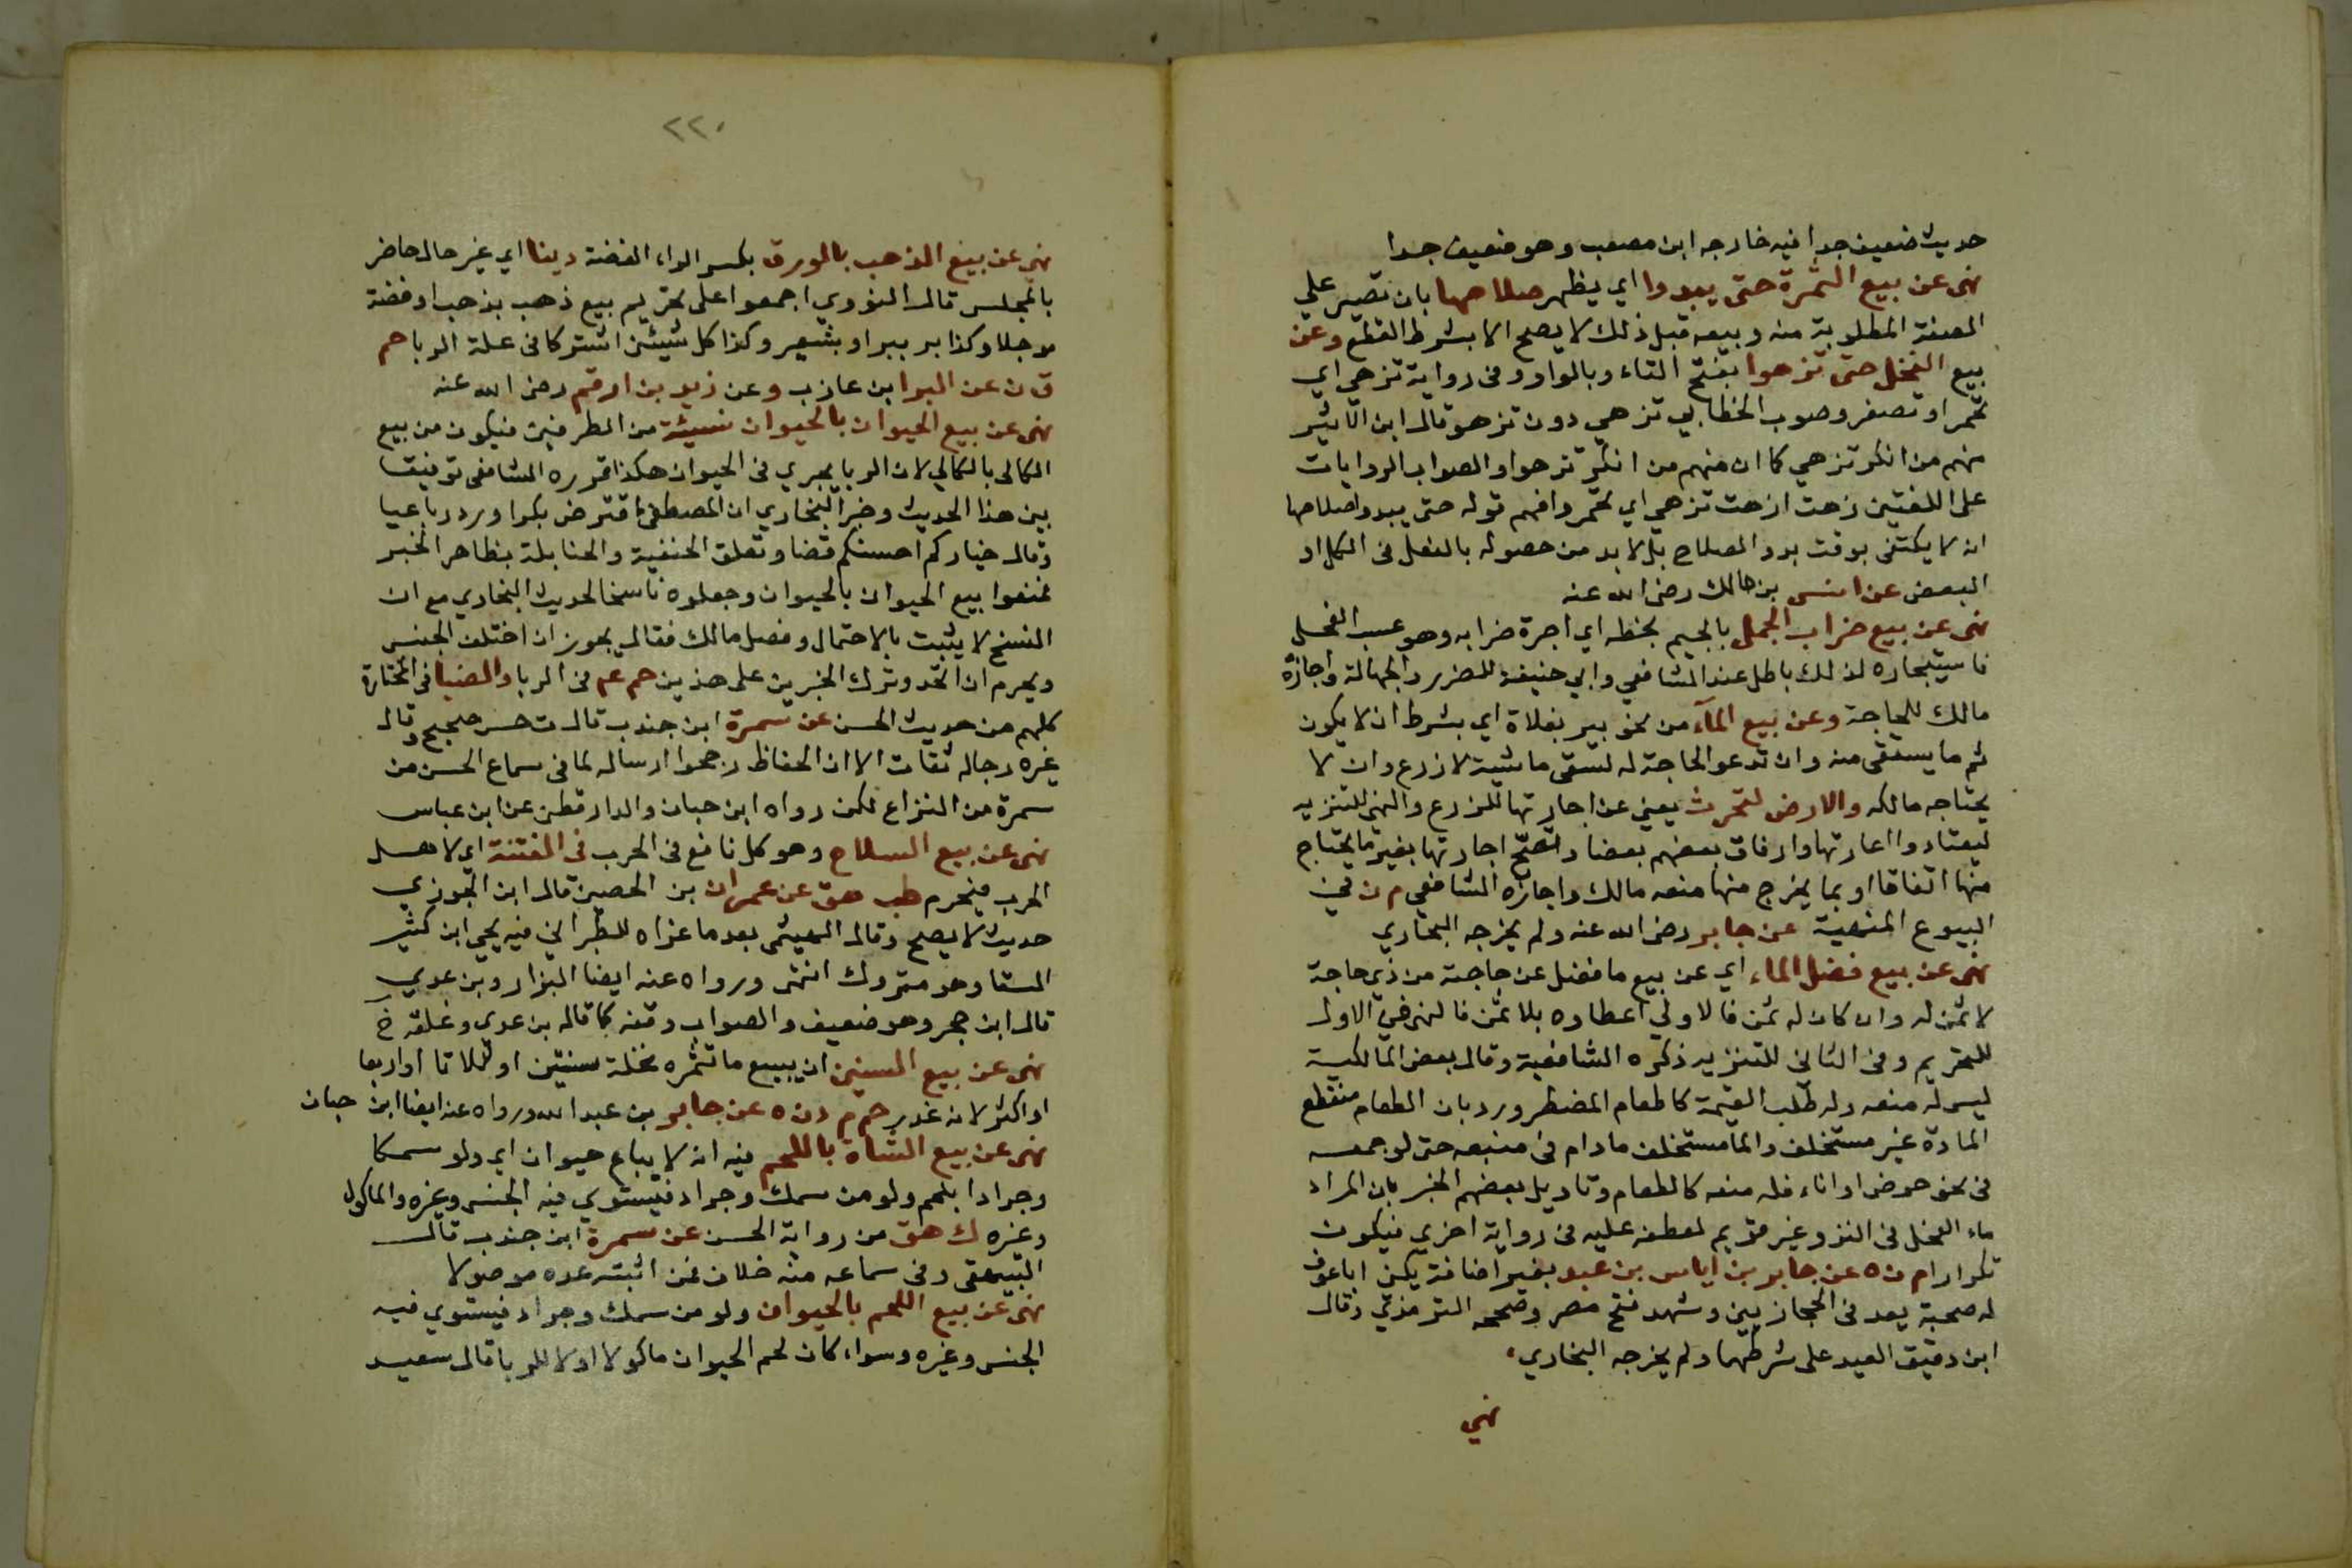 حديث ضعيف جدا فيه خارجه ابن مصعب وهو ضعيف جدا
نهى عن بيع الثمرة حتى يبدوا اي يظهر صلاحها بان تصير علي
الصفة المطلوبة منه وبيعه قبل ذلك لا يصح الا بشرط القطع وعن
بيع النخل حتى تزهوا بفتح التاء وبالواو وفى رواية تزهي اي
تحمر او تصفر وصوب الخطابي تزهي دون تزهو قال ابن الاثير
منهم من انكر تزهي كما ان منهم من انكر تزهوا والصواب الروايات
على اللغتين زهت ازهت تزهي اي تحمر وافهم قوله حتى يبدوا صلاحها
انه لا يكتفى بوقت بدو الصلاح بل لا بد من حصوله بالفعل فى الكل او
البعض عن انس بن مالك رضى الله عنه
نهى عن بيع ضراب الجمل بالجيم بخطه اي اجرة ضرابه وهو عسب الفحل
فاستيجاره لذلك باطل عند الشافعي وابي حنيفة للضرر والجهالة واجازه
مالك للحاجة وعن بيع المآء من نحو بير بفلاة اي بشرط ان لا يكون
ثم ما يستقى منه وان تدعو الحاجة له لسقى ماشية لا زرع وان لا
يحتاجه مالكه والارض لتحرث يعني عن اجارتها للزرع والنهى للتنزيه
ليعتادوا اعارتها وارفاق بعضهم بعضا وتصح اجارتها بغير ما يحتاج
منها اتفاقا او بما يخرج منها منعه مالك واجازه الشافعي م ن فى
البيوع المنهية عن جابر رضى الله عنه ولم يخرجه البخاري
نهى عن بيع فضل الماء اي عن بيع ما فضل عن حاجته من ذي حاجة
لا ثمن له وان كان له ثمن فالاولى اعطاوه بلا ثمن فالنهى فى الاول
للتحريم وفى الثانى للتنزيه ذكره الشافعية وقال بعض المالكية
ليس له منعه وله طلب القيمة كالطعام المضطر ورد بان الطعام منقطع
المادة غير مستخلف والما مستخلف مادام فى منبعه حتى لو جمعه
فى نحو حوض او اناء فله منعه كالطعام وتاويل بعضهم الخبر بان المراد
ماء الفحل فى النزو غير قويم لعطفه عليه فى رواية اخري فيكون
تكرارا م ن ه عن جابر بن اياس بن عبد بغير اضافة يكن اباعوف
له صحبة يعد فى الحجازيين وشهد فتح مصر وصححه الترمذي وقال
ابن دقيق العيد على شرطهما ولم يخرجه البخاري
نهي
٢٢٠
نهي عن بيع الذهب بالورق بكسر الراء الفضة دينا اي غير حال حاضر
بالمجلس قال النووي اجمعوا على تحريم بيع ذهب بذهب او فضة
موجلا وكذا بر ببر او بشعير وكذا كل شيئن اشتركا فى علة الربا حم
ق ن عن البرا ابن عازب وعن زيد بن ارقم رضى الله عنه
نهى عن بيع الحيوان بالحيوان نسيئة من الطرفين فيكون من بيع
الكالى بالكالي لان الربا يجري فى الحيوان هكذا قرره الشافعى توفيقا
بين هذا الحديث وخبر البخاري ان المصطفى اقترض بكرا ورد رباعيا
وقال خياركم احسنكم قضا وتعلق الحنفية والحنابلة بظاهر الخبر
فمنعوا بيع الحيوان بالحيوان وجعلوه ناسخا لحديث البخاري مع ان
النسخ لا يثبت بالاحتمال وفصل مالك فقال يجوز ان اختلف الجنس
ويحرم ان اتحد وترك الخبرين على هذين حم عم فى الربا والضيا فى المختارة
كلهم من حديث الحسن عن سمرة ابن جندب قال ت حسن صحيح وقال
غيره رجاله ثقات الا ان الحفاظ رجحوا ارساله لما فى سماع الحسن من
سمرة من النزاع لكن رواه ابن حبان والدارقطنى عن ابن عباس
نهى عن بيع السلاح وهو كل نافع فى الحرب فى الفتنة اي لاهل
الحرب فيحرم طب هق عن عمران بن الحصين قال ابن الجوزي
حديث لا يصح وقال الهيثمى بعد ما عزاه للطبراني فيه يحيي ابن كثير
السقا وهو متروك انتهى ورواه عنه ايضا البزار وبن عدي
قال ابن حجر وهو ضعيف والصواب وقفه كما قاله بن عدي وعلقه خ
نهى عن بيع السنين ان يبيع ما تثمره نخلة سنتين او ثلاثا او اربعا
او اكثر لانه غدر حم م د ن ه عن جابر بن عبد الله ورواه عنه ايضا ابن حبان
نهى عن بيع الشاة باللحم فيه انه لا يباع حيوان اي ولو سمكا
وجرادا بلحم ولو من سمك وجراد فيستوي فيه الجنس وغيره والماكول
وغيره ك هق من رواية الحسن عن سمرة ابن جندب قال
البيهقى وفى سماعه منه خلاف فمن اثبته عده موصولا
نهى عن بيع اللحم بالحيوان ولو من سمك وجراد فيستوي فيه
الجنس وغيره وسواء كان لحم الحيوان ماكولا او لا للربا قال سعيد